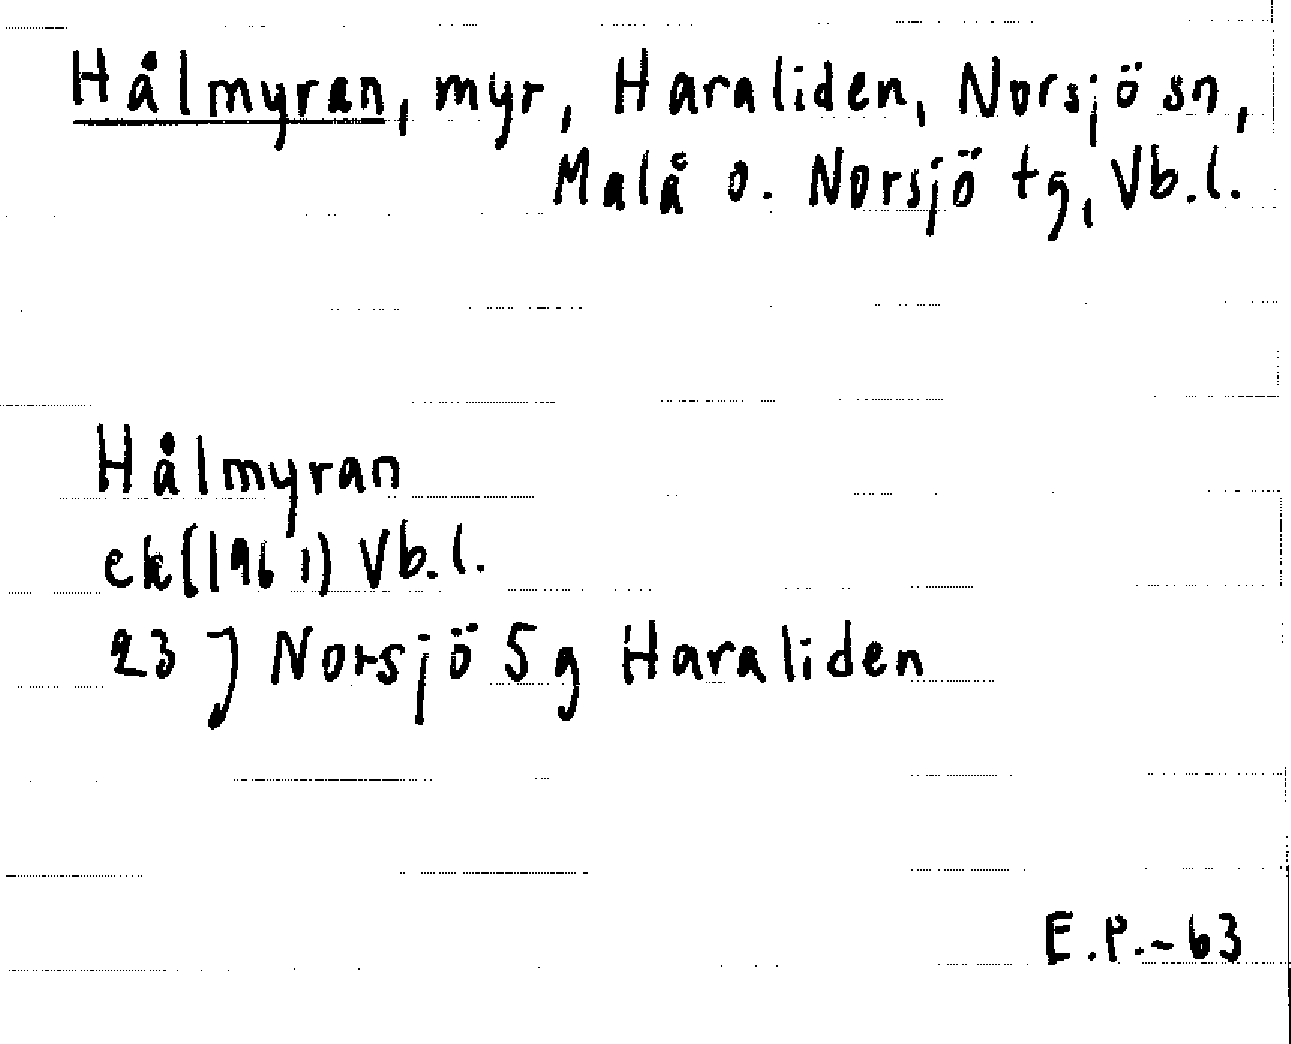 Hålmyran, myr, Haraliden, Norsjö sn,
Malå o. Norsjö tg, Vb.l.
Hålmyran
ek(1961) Vb.l.
23 J Norsjö 5 g Haraliden
E.P.-63